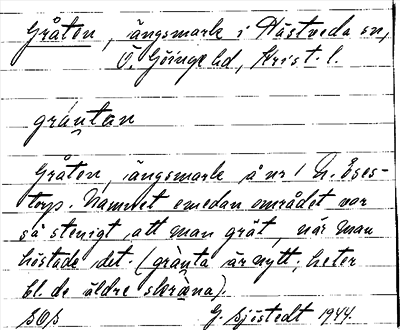 Gråten, ängsmark i Hästveda sn,
Ö. Göinge hd, Krist. l.
gråntan
Gråten, ängsmark å nr 1 N. Öses-
torp. Namnet emedan området var
så stenigt, att man grät, när man
höstade det. (grànta är nytt, heter
bl. de äldre skràna).
G. Sjöstedt 1944.